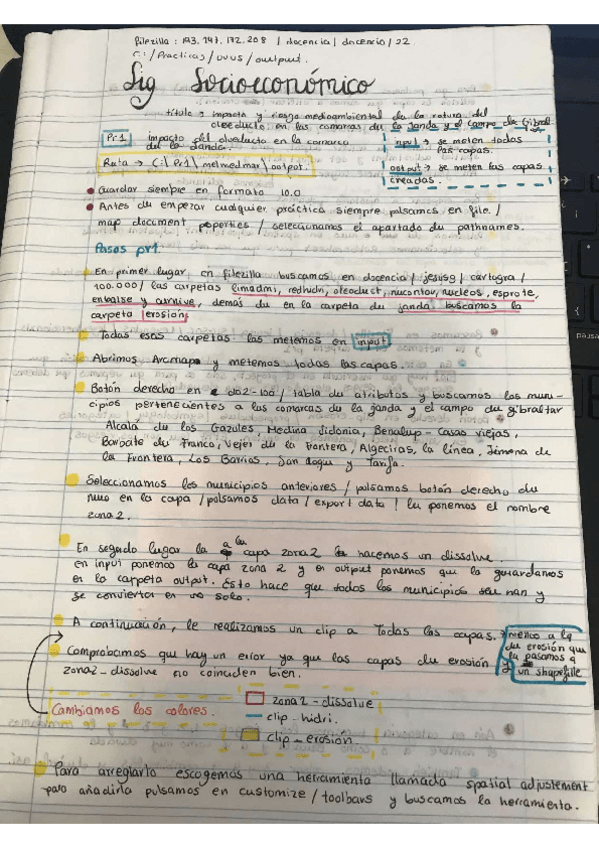 filezilla: 193.147.172.208 / docencia / docencia / 22
C:/Practicas/UVUS/output.
Sig Socioeconómico
título → impacto y riesgo medioambiental de la rotura del
oleoducto en las comarcas de la janda y el campo de Gibral.
Pr1 impacto del oleoducto en la comarca
de la Janda.
input → se meten todas
las capas.
output → se meten las capas
creadas.
Ruta → C:\ Pr1 \ melmedmar \ output.
Guardar siempre en formato 10.0
Antes de empezar cualquier práctica siempre pulsamos en file /
map document poperties / seleccionamos el apartado de pathnames.
Pasos pr1.
En primer lugar, en filezilla buscamos en docencia / jesusg / cartogra /
100.000 / las carpetas limadmi, redhidri, oleoduct, nucontou, nucleos, esprote,
embalse y demás de en la carpeta de janda buscamos la
carpeta erosión
Todas esas carpetas las metemos en input
Abrimos Arcmap y metemos todas las capas.
Botón derecho en da02-100 / tabla de atributos y buscamos los muni-
cipios pertenecientes a las comarcas de la janda y el campo de gibraltar
Alcalá de los Gazules, Medina Sidonia, Benalup - Casas viejas,
Barbate de Franco, Vejer de la Frontera, Algeciras, la línea, Jimena de
la Frontera, Los Barrios, San roque y Tarifa.
Seleccionamos los municipios anteriores / pulsamos botón derecho de
nuevo en la capa / pulsamos data / export data / le ponemos el nombre
zona 2.
En segundo lugar a la capa zona2 le hacemos un dissolve.
en input ponemos la capa zona 2 y en output ponemos que la guardamos
en la carpeta output. Esto hace que todos los municipios se unan y
se convierta en uno solo.
A continuación, le realizamos un clip a Todas las capas.
menos a la
de erosión que
la pasamos a
un shapefile
Comprobamos que hay un error ya que las capas de erosión y
zona2-dissolve no coinciden bien.
Cambiamos los colores.
zona2 - dissolve
clip - hidri.
clip - erosión
Para arreglarlo escogemos una herramienta llamada spatial adjustement
para añadirla pulsamos en customize / toolbars y buscamos la herramienta.